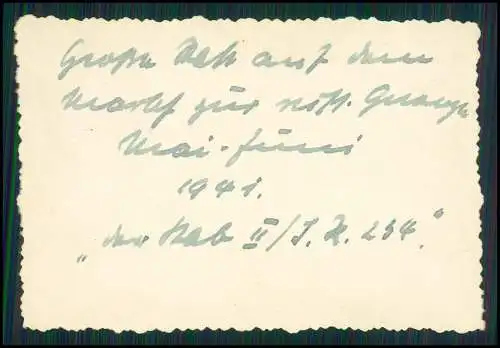 Große Rast auf dem
Marsch zur russ. Grenze
Mai-Juni
1941.
"der Stab II/I.R. 234."